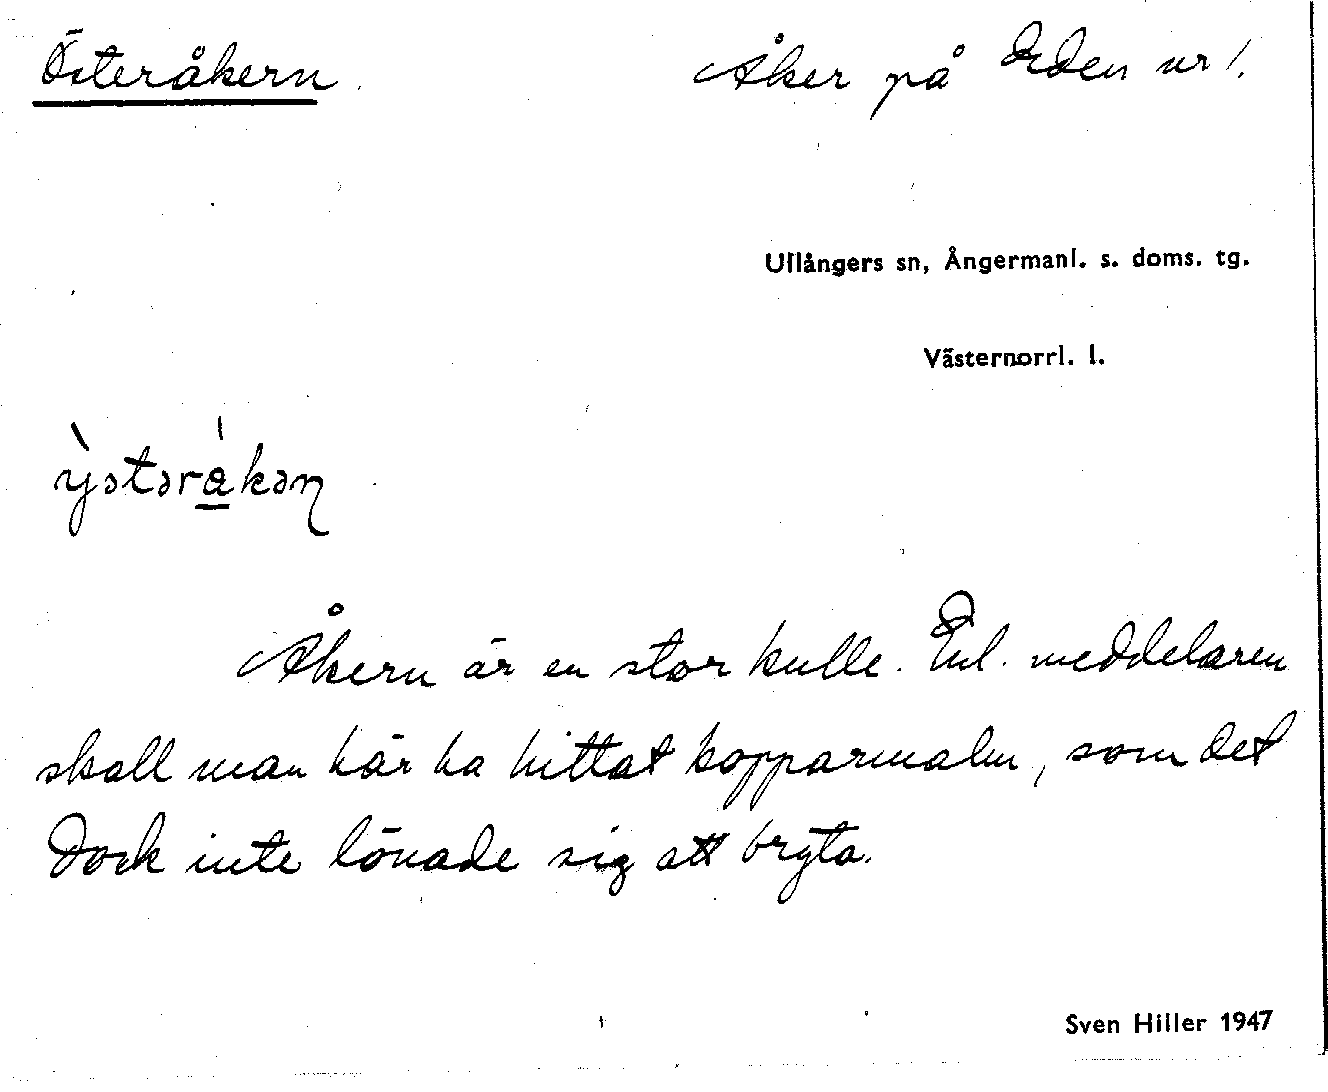 Österåkern.
Åker på Eden nr 1.
Ullångers sn, Ångermanl. s. doms. tg.
Västernorrl. l.
Åkern är en stor kulle. Enl. meddelaren
skall man här ha hittat kopparmalm, som det
dock inte lönade sig att bryta.
Sven Hiller 1947